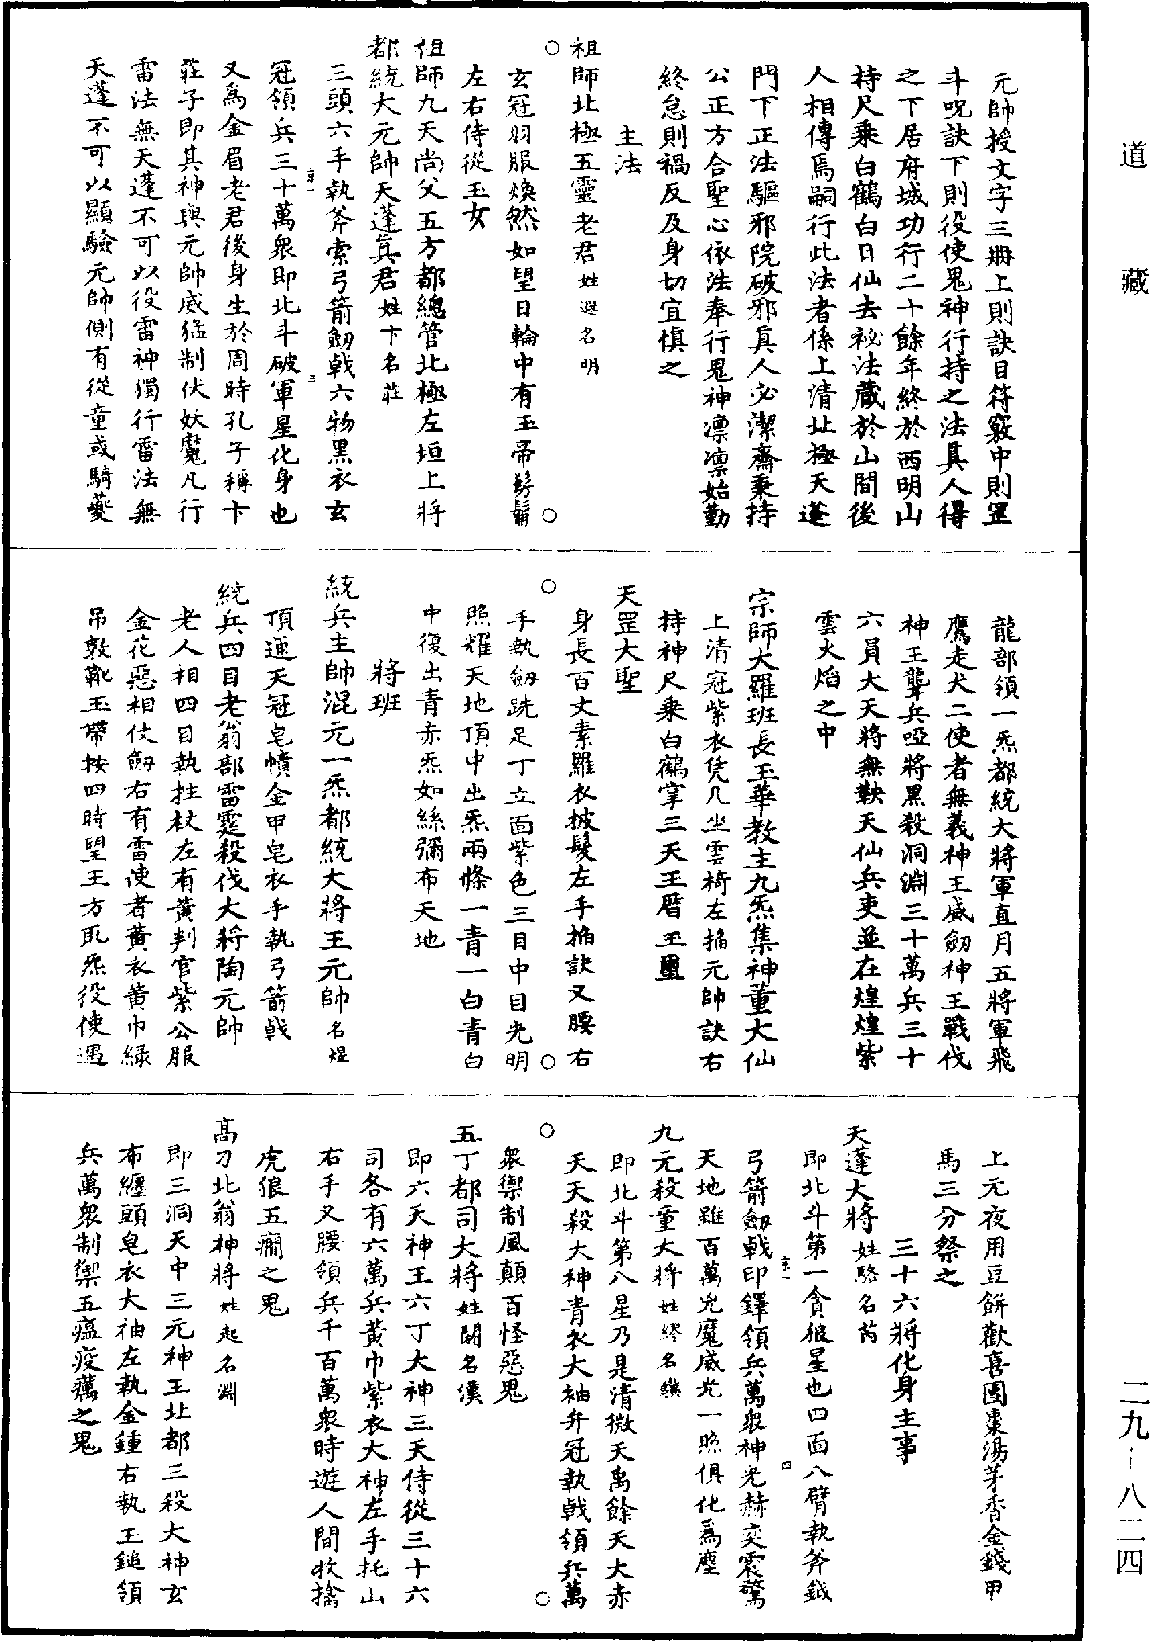 道藏
元帥授文字三冊上則訣目符竅中則罡
斗呪訣下則役使鬼神行持之法真人得
之下居府城功行二十餘年終於西明山
持尺乘白鶴白日仙去祕法藏於山間後
人相傳焉嗣行此法者係上清北極天蓬
門下正法驅邪院破邪真人必潔齋秉持
公正方合聖心依法奉行鬼神凛凛始勤
終怠則禍反及身切宜慎之
主法
祖師北極五靈老君姓遐名明
玄冠羽服煥然如望日輪中有玉帝髣髴
左右侍從玉女
祖師九天尚父五方都總管北極左垣上將
都統大元帥天蓬真君姓卞名莊
三頭六手執斧索弓箭劒戟六物黑衣玄
冠領兵三十萬衆即北斗破軍星化身也
又爲金眉老君後身生於周時孔子稱卞
莊子即其神與元帥威猛制伏妖魔凡行
雷法無天蓬不可以役雷神獨行雷法無
天蓬不可以顯驗元帥側有從童或騎夔
龍部領一炁都統大將軍直月五將軍飛
鷹走犬二使者無義神王威劒神王戰伐
神王聾兵啞將黑殺洞淵三十萬兵三十
六員大天將無鞅天仙兵吏並在煌煌紫
雲火焰之中
宗師大羅班長玉華教主九炁集神董大仙
上清冠紫衣凭几坐雲椅左掐元帥訣右
持神尺乘白鶴掌三天王曆玉璽
天罡大聖
身長百丈素羅衣披髮左手掐訣叉腰右
手執劒跣足丁立面紫色三目中目光明
照耀天地頂中出炁兩條一青一白青白
中復出青赤炁如絲彌布天地
將班
統兵主帥混元一炁都統大將王元帥名烜
頂運天冠皂幘金甲皂衣手執弓箭戟
統兵四目老翁部雷霆殺伐大將陶元帥
老人相四目執拄杖左有黃判官紫公服
金花惡相仗劒右有雷使者黃衣黃巾緑
吊敦靴玉帶按四時望王方取炁役使遇
上元夜用豆餅歡喜團棗湯茅香金錢甲
馬三分祭之
三十六將化身主事
天蓬大將姓駱名芮
即北斗第一貪狼星也四面八臂執斧鉞
弓箭劒戟印鐸領兵萬衆神光赫奕震驚
天地雖百萬兇魔威光一照俱化爲塵
九元殺童大將姓繆名
即北斗第八星乃是清微天禹餘天大赤
天天殺大神青衣大袖弁冠執戟領兵萬
衆禦制風顛百怪惡鬼
五丁都司大將姓闘名漢
即六天神王六丁大神三天侍從三十六
司各有六萬兵黃巾紫衣大神左手托山
右手叉腰領兵千百萬衆時遊人間收擒
虎狼五癇之鬼
高刁北翁神將姓起名淵
即三洞天中三元神王北都三殺大神玄
布纏頭皂衣大袖左執金鍾右執玉鎚領
兵萬衆制禦五瘟疫癘之鬼
二九-八二四